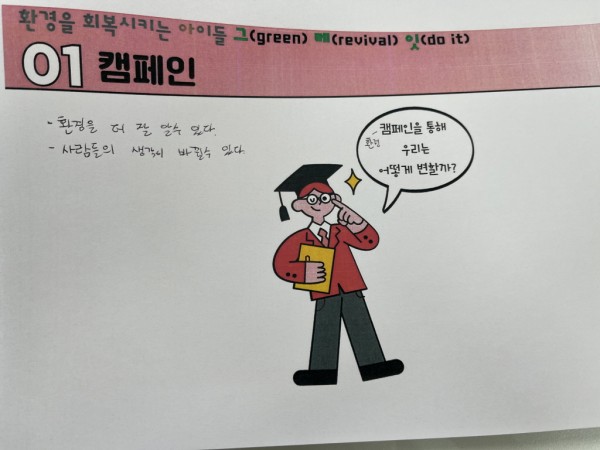 환경을 회복시키는 아이들 그(green) 레(revival) 잇(do it)
01 캠페인
- 환경을 더 잘 알수 있다.
- 사람들의 생각이 바뀔수 있다.
캠페인을 통해
환경
우리는
어떻게 변할까?